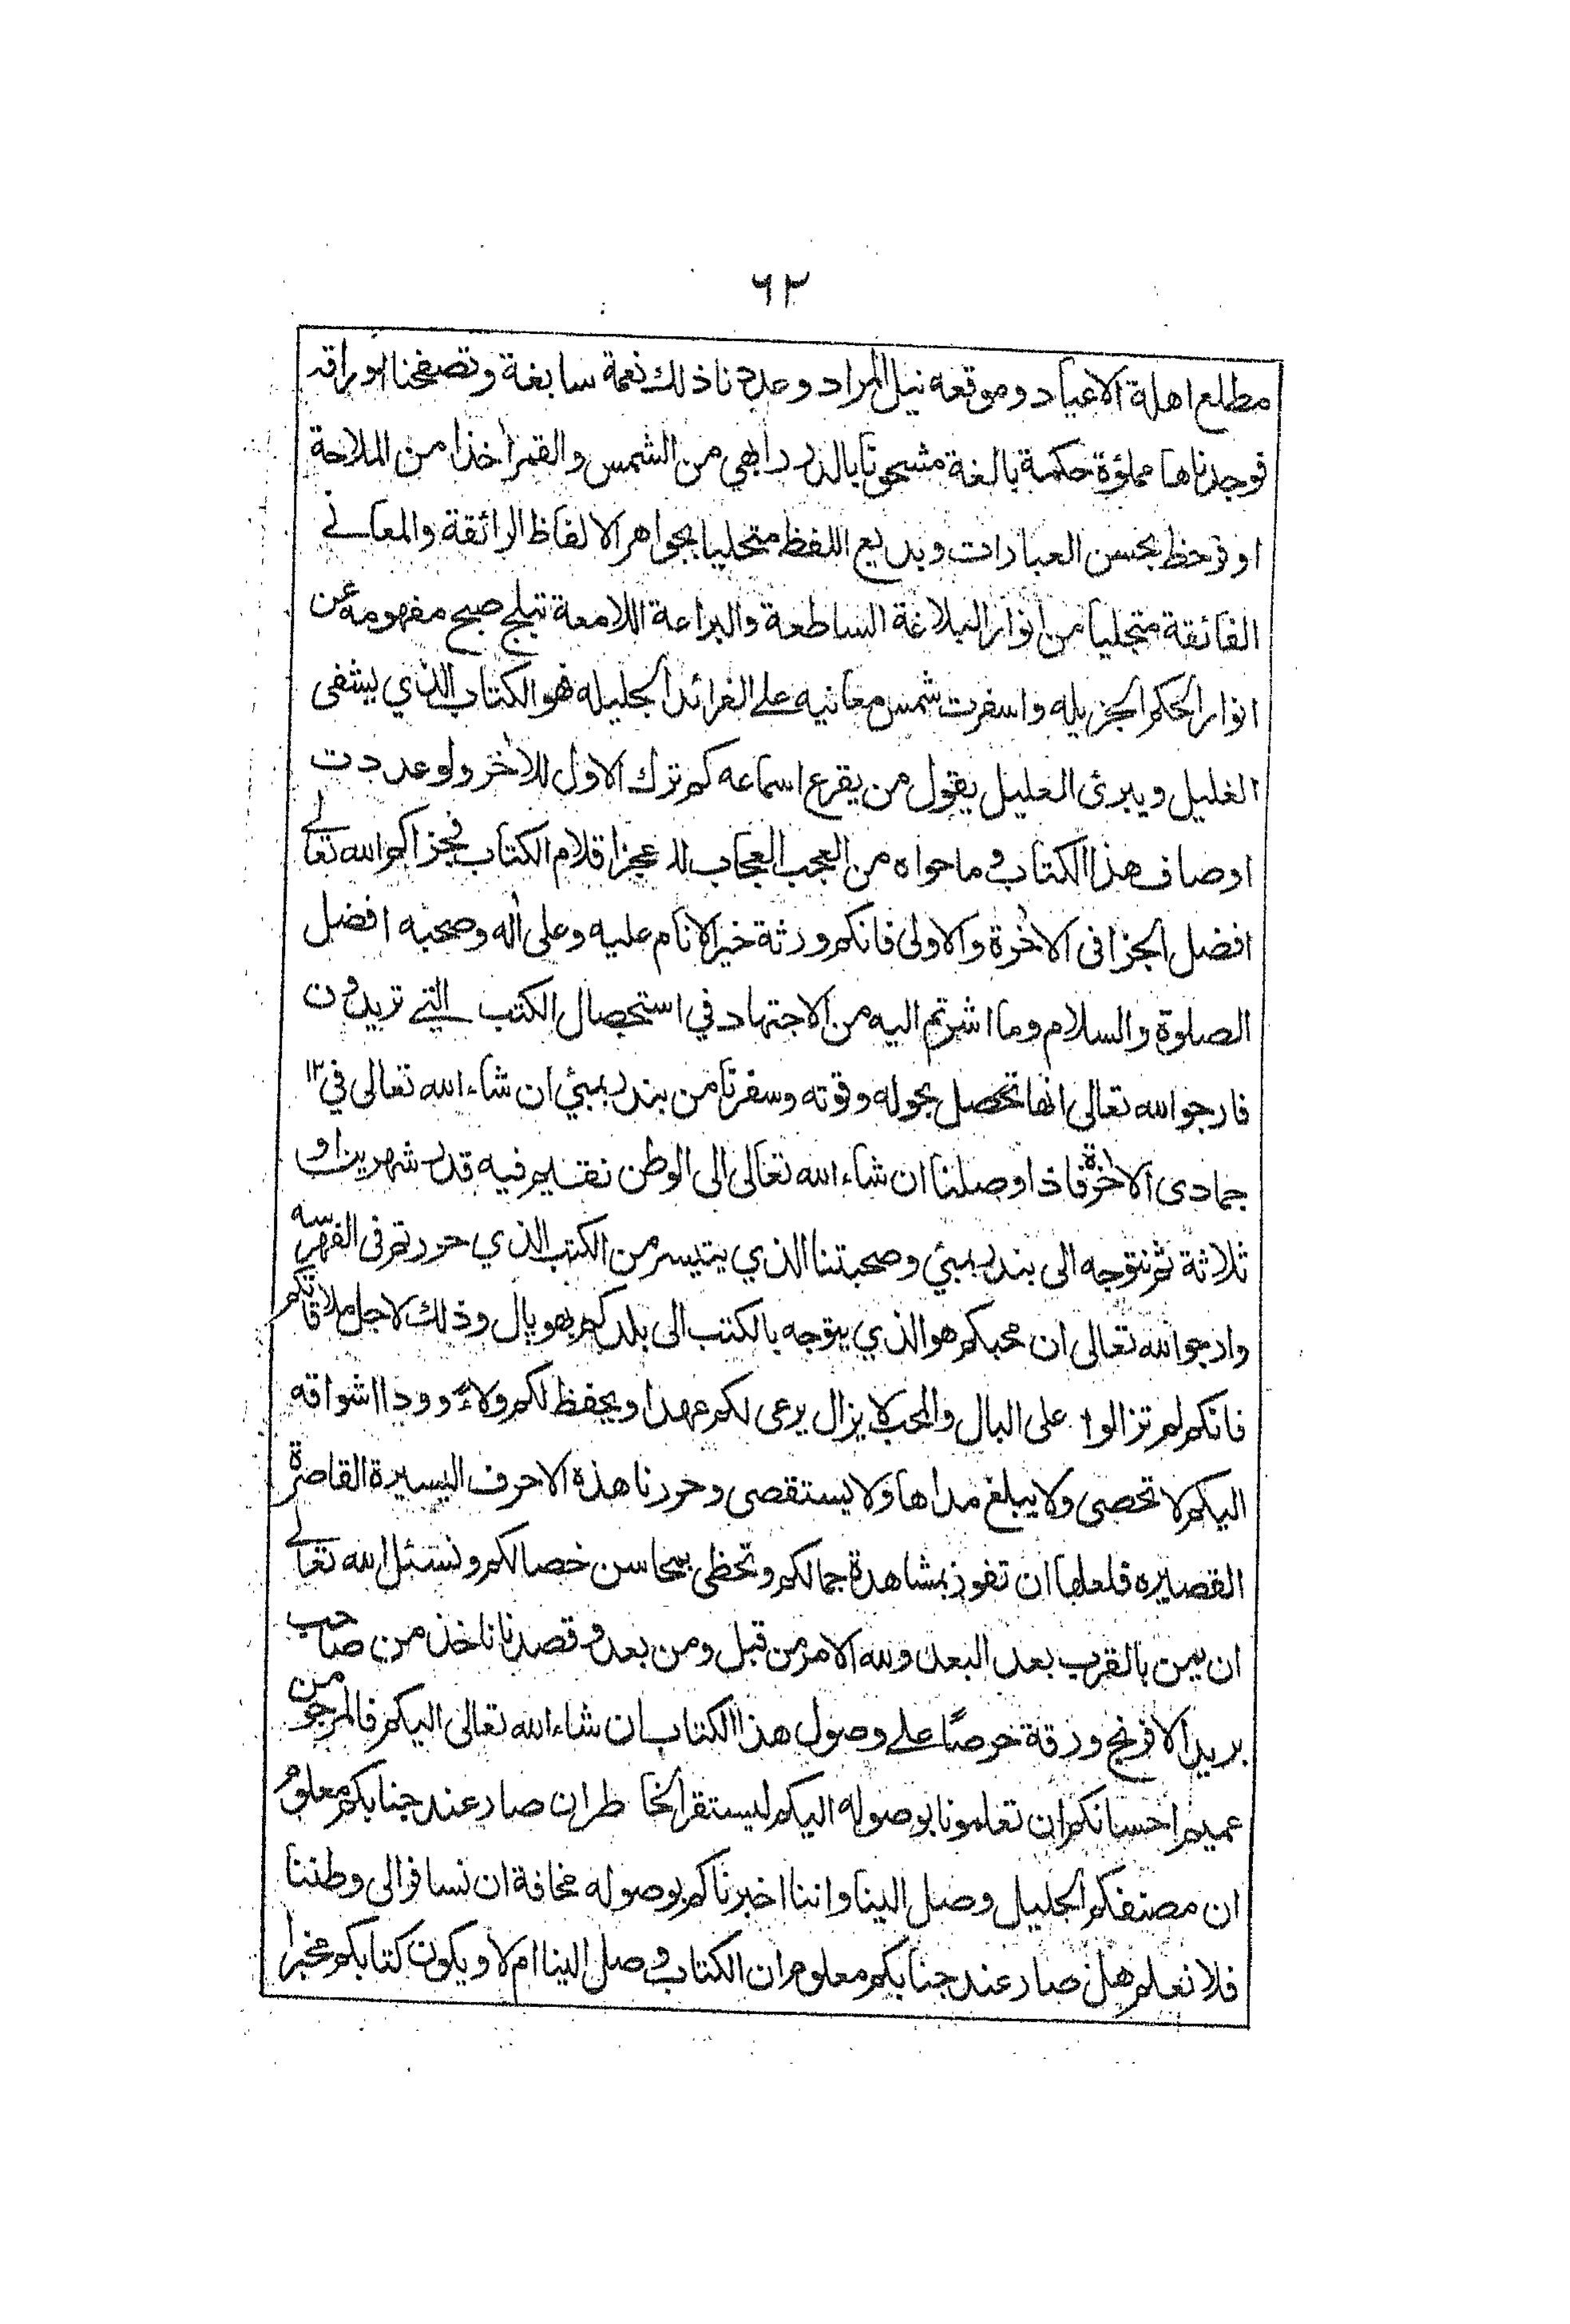 ٦٢
مطلع اهلة الاعياد وموقعه نيل المراد وعددنا ذلك نعمة سابغة وتصفحنا اوراقه
فوجدناها مملؤة حكمة بالغة مشحونا بالدرر ابهي من الشمس والقمر أخذا من الملاحة
اوفر حظ بحسن العبارات وبديع اللفظ متحليا بجواهر الالفاظ الرائقة والمعاني
الفائقة متجليا من انوار البلاغة الساطعة والبراعة اللامعة تبلج صبح مفهومه عن
انوار الحكم الجزيله واسفرت شمس معانيه على الفرائد الجليله فهو الكتاب الذي يشفى
الغليل ويبرئ العليل يقول من يقرع اسماعه كم ترك الاول للأخر ولو عددت
اوصاف هذا الكتاب وما حواه من العجب العجاب لا عجز اقلام الكتاب فجزاكم الله تعالى
افضل الجزا فى الاخرة والاولى فانكم ورثة خير الانام عليه وعلى أله وصحبه افضل
الصلوة والسلام وما اشرتم اليه من الاجتهاد في استحصال الكتب التي تريدون
فارجو الله تعالى انها تحصل بحوله وقوته وسفرنا من بندر بمبئي ان شاء الله تعالى في ١٢
جمادى الاخرة فاذا وصلنا ان شاء الله تعالى الى الوطن نقيم فيه قدر شهرين او
ثلاثة ثم نتوجه الى بندر بمبئي وصحبتنا الذي يتيسر من الكتب الذي حررتم فى الفهرسه
وارجو الله تعالى ان محبكم هو الذي يتوجه بالكتب الى بلدكم بهوپال وذلك لاجل ملاقاتكم
فانكم لم تزالوا على البال والمحب لا يزال يرعى لكم عهدا ويحفظ لكم ولاءً وودا اشواقه
اليكم لا تحصى ولا يبلغ مداها ولا يستقصى وحررنا هذه الاحرف اليسيرة القاصرة
القصيره فلعلها ان تفوز بمشاهدة جمالكم وتحظى بمحاسن خصالكم ونسئل الله تعالى
ان يمن بالقرب بعد البعد ولله الامر من قبل ومن بعد وقصدنا ناخذ من صاحب
بريد الافرنج ورقة حرصًا على وصول هذا الكتاب ان شاء الله تعالى اليكم فالمرجو من
عميم احسانكم ان تعلمونا بوصوله اليكم ليستقر الخاطر ان صار عند جنابكم معلوم
ان مصنفكم الجليل وصل الينا واننا اخبرناكم بوصوله مخافة ان نسافر الى وطننا
فلا نعلم هل صار عند جنابكم معلوم ان الكتاب وصل الينا ام لا ويكون كتابكم مخبرا